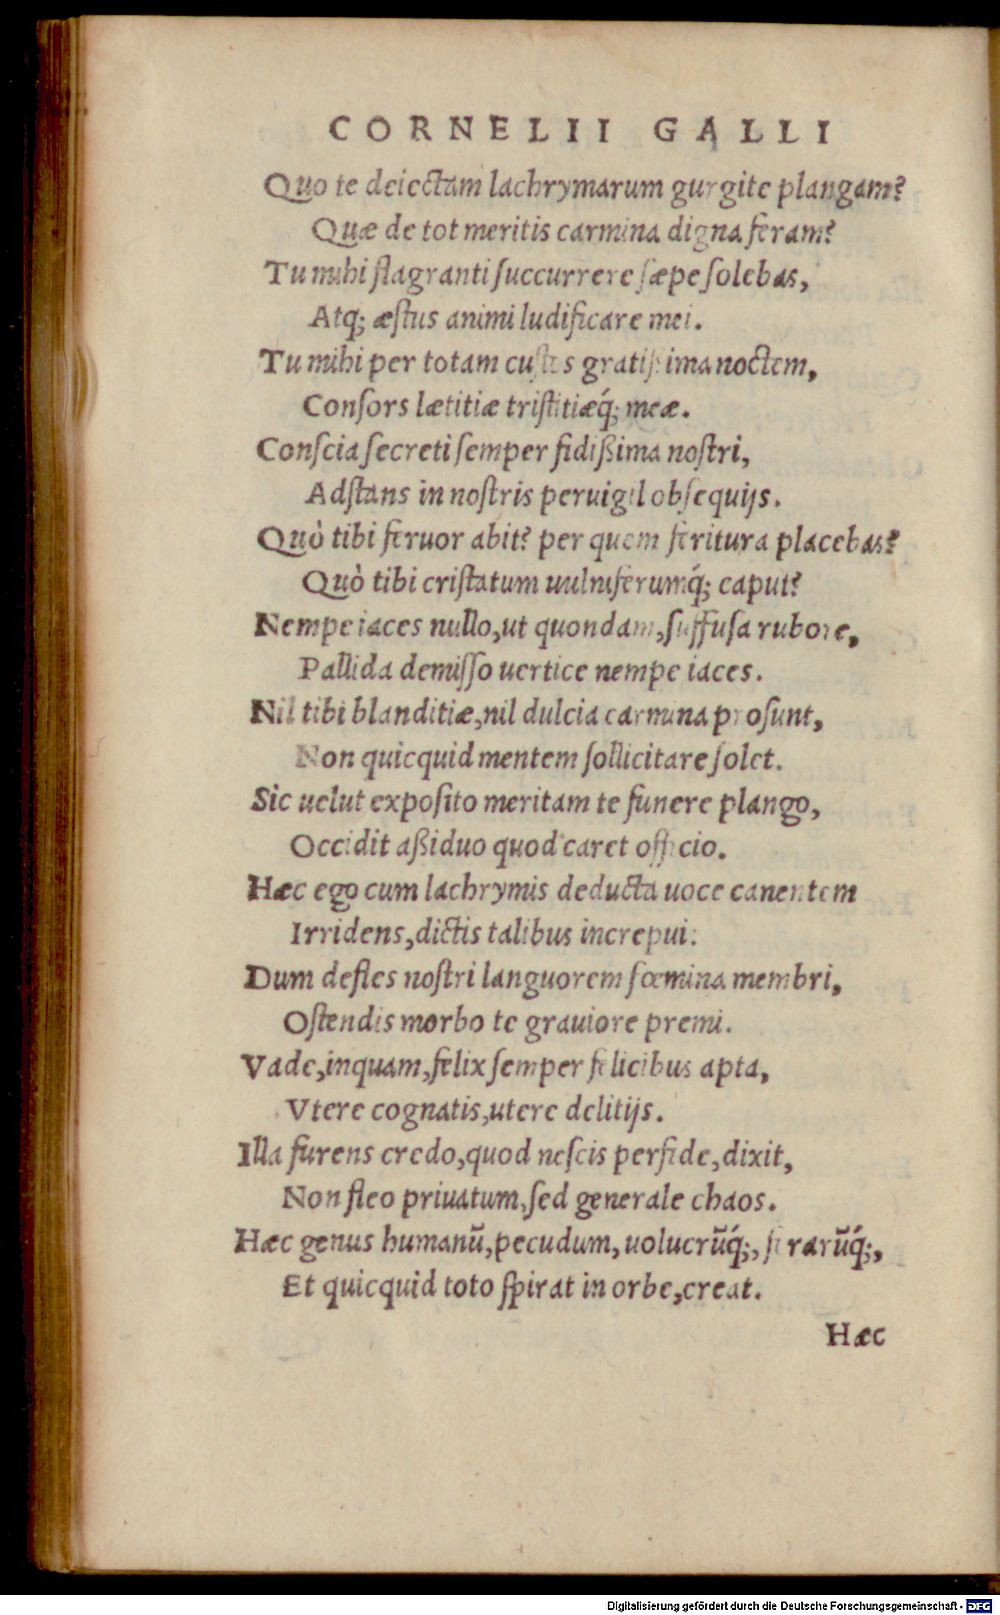 CORNELII GALLI
Quo te deiectam lachrymarum gurgite plangam?
Quæ de tot meritis carmina digna feram?
Tu mihi flagranti succurrere sæpe solebas,
Atq; æstus animi ludificare mei.
Tu mihi per totam custos gratissima noctem,
Consors lætitiæ tristitiæq́; meæ.
Conscia secreti semper fidißima nostri,
Adstans in nostris peruigil obsequijs.
Quò tibi feruor abit? per quem feritura placebas?
Quò tibi cristatum uulniferumq́; caput?
Nempe iaces nullo, ut quondam, suffusa rubore,
Pallida demisso uertice nempe iaces.
Nil tibi blanditiæ, nil dulcia carmina prosunt,
Non quicquid mentem sollicitare solet.
Sic uelut exposito meritam te funere plango,
Occidit aßiduo quod caret officio.
Hæc ego cum lachrymis deducta uoce canentem
Irridens, dictis talibus increpui:
Dum defles nostri languorem fœmina membri,
Ostendis morbo te grauiore premi.
Vade, inquam, felix semper felicibus apta,
Vtere cognatis, utere delitijs.
Illa furens credo, quod nescis perfide, dixit,
Non fleo priuatum, sed generale chaos.
Hæc genus humanũ, pecudum, uolucrũq́;, ferarũq́;,
Et quicquid toto spirat in orbe, creat.
Hæc
Digitalisierung gefördert durch die Deutsche Forschungsgemeinschaft - DFG